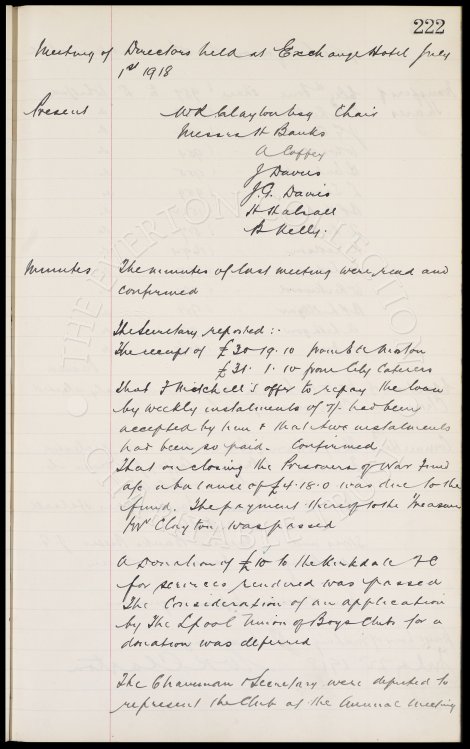 222
Meeting of Directors held at Exchange Hotel July
1st 1918
Present W R Clayton Esq Chair
Messrs H Banks
A Coffey
J Davies
J. G. Davis
H Halsall
B Kelly.
Minutes The minutes of last meeting were read and
confirmed
The Secretary reported:-
The receipt of £20.19.10 from
£31. 1. 10 from City Caterers
That F Mitchell's offer to repay the loan
by weekly instalments of 7/- had been
accepted by him & that two instalments
had been so paid. Confirmed,
That on closing the Prisoners of War Fund
a/c a balance of £4.18.0 was due to the
fund. The payment thereof to the Treasurer
Mr Clayton was passed
A Donation of £10 to the Kirkdale F C
for services rendered was passed
The Consideration of an application
by The Lpool Union of Boys Clubs for a
donation was deferred
The Chairman & Secretary were deputed to
represent the Club at the Annual Meeting
THE EVERTON COLLECTION